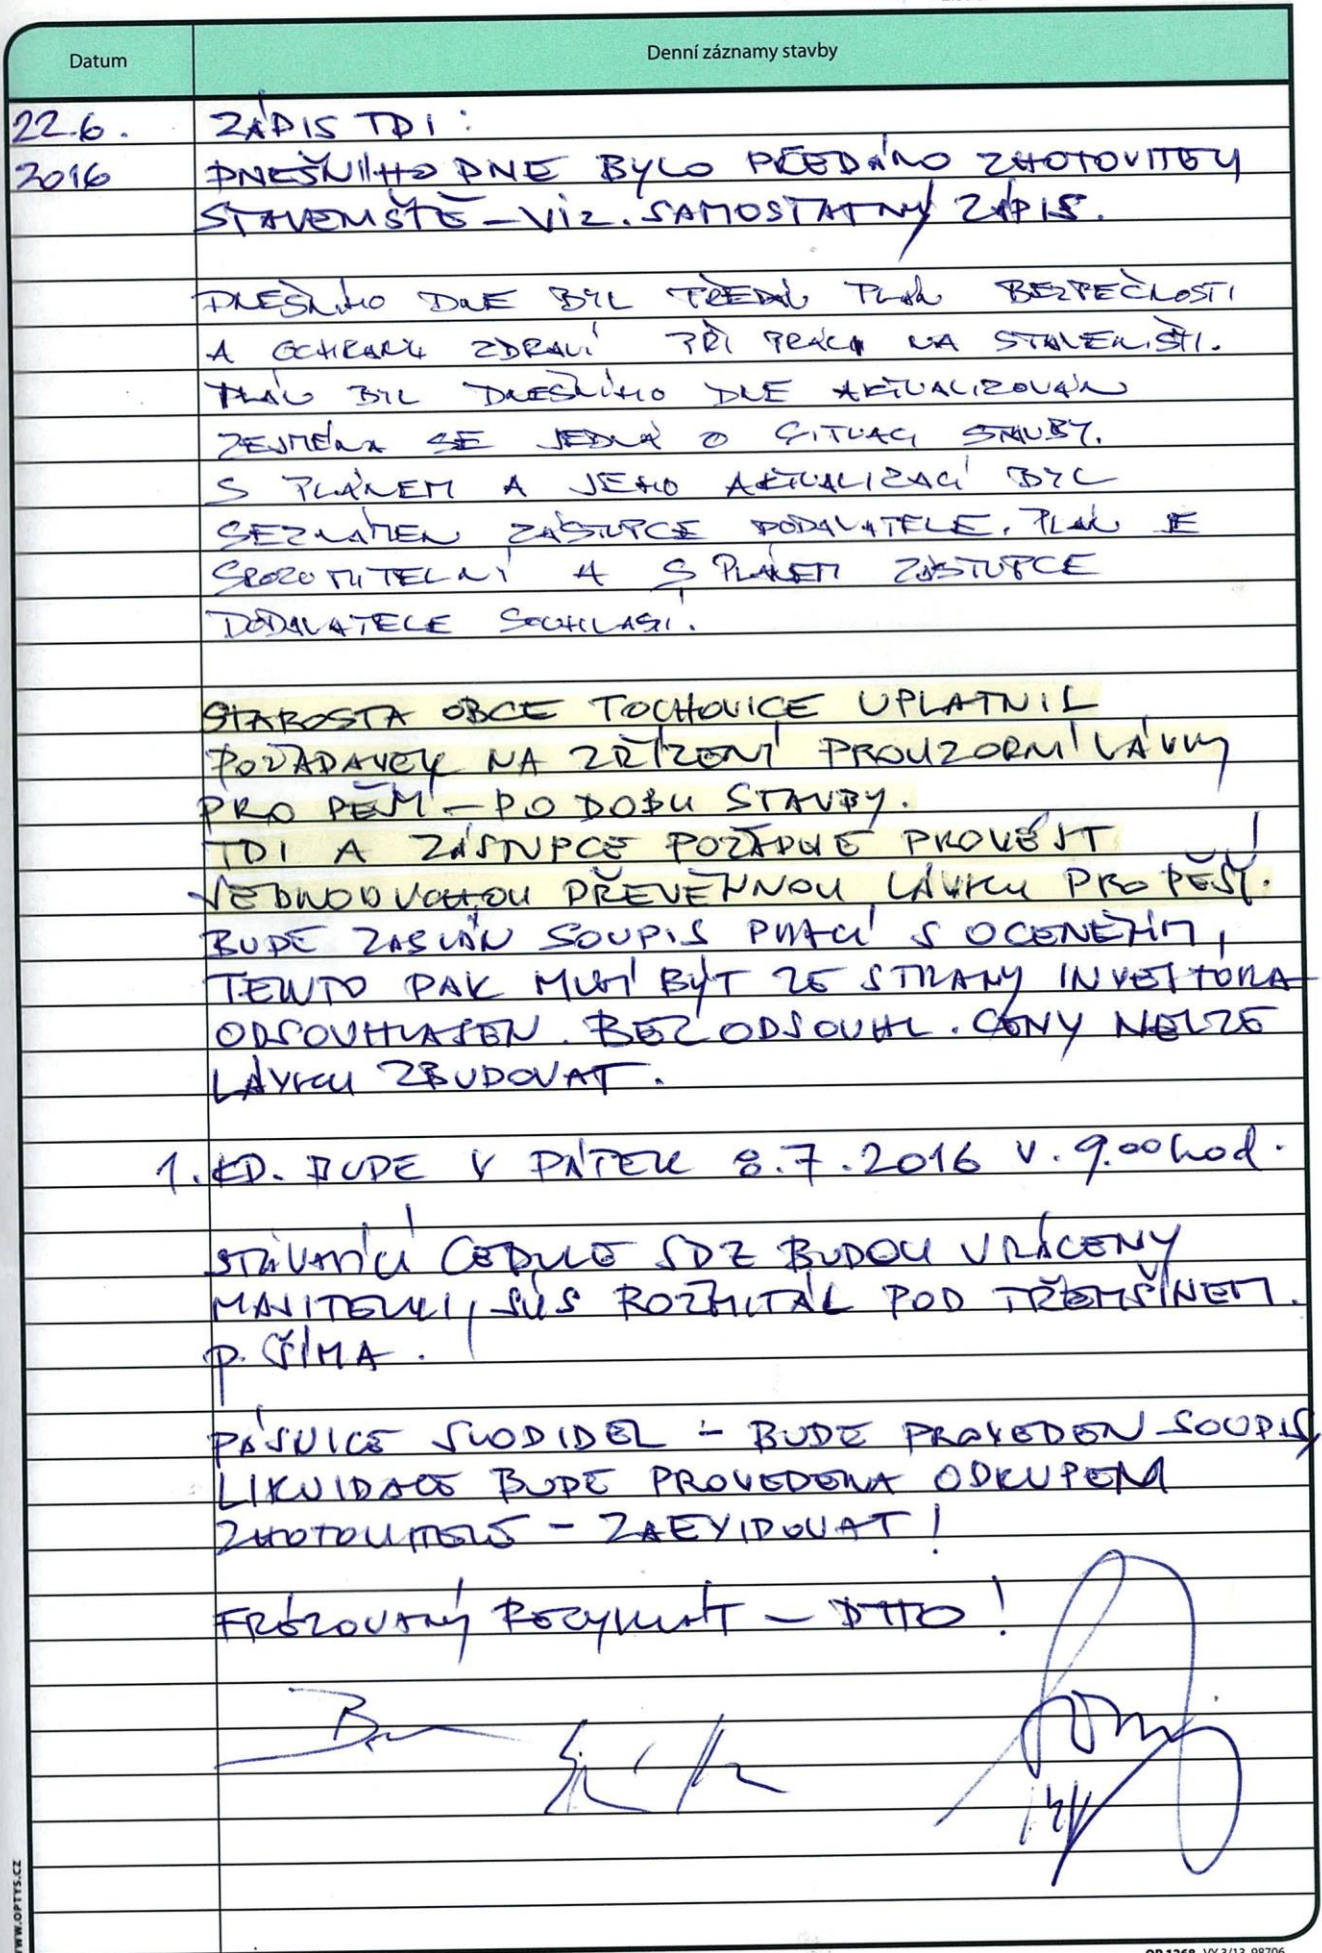 Datum
Denní záznamy stavby
22.6.
2016
ZÁPIS TDI:
DNEŠNÍHO DNE BYLO PŘEDÁNO ZHOTOVITELI
STAVENIŠTĚ – VIZ. SAMOSTATNÝ ZÁPIS.
DNEŠNÍHO DNE BYL PŘEDÁN PLÁN BEZPEČNOSTI
A OCHRANY ZDRAVÍ PŘI PRÁCI NA STAVENIŠTI.
PLÁN BYL DNEŠNÍHO DNE AKTUALIZOVÁN
ZEJMÉNA SE JEDNÁ O SITUACI STAVBY.
S PLÁNEM A JEHO AKTUALIZACÍ BYL
SEZNÁMEN ZÁSTUPCE DODAVATELE. PLÁN JE
SROZUMITELNÝ A S PLÁNEM ZÁSTUPCE
DODAVATELE SOUHLASÍ.
STAROSTA OBCE TOCHOVICE UPLATNIL
POŽADAVEK NA ZŘÍZENÍ PROVIZORNÍ LÁVKY
PRO PĚŠÍ – PO DOBU STAVBY.
TDI A ZÁSTUPCE PROVÉST
JEDNODUCHOU DŘEVĚNNOU LÁVKU PRO PĚŠÍ.
BUDE ZASLÁN SOUPIS PRACÍ S OCENĚNÍM,
TENTO PAK MUSÍ BÝT ZE STRANY INVESTORA
ODSOUHLASEN. BEZ ODSOUHL. CENY NELZE
LÁVKU ZBUDOVAT.
1. KD. BUDE V PÁTEK 8.7.2016 V. 9.00 hod.
STÁVAJÍCÍ CEDULE SDZ BUDOU VRÁCENY
MAJITELI, SÚS ROŽMITÁL POD TŘEMŠÍNEM.
P. ŠÍMA.
PÁSNICE SVODIDEL – BUDE PROVEDEN SOUPIS,
LIKVIDACE BUDE PROVEDENA ODKUPEM
ZHOTOVITELE – ZAEVIDOVAT!
FRÉZOVANÝ RECYKLÁT – DTTO!
WWW.OPTYS.CZ
OP 1268 VY 3/13 98706